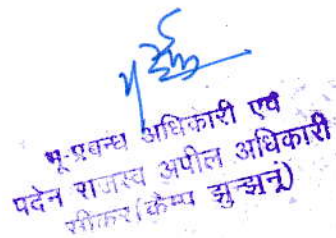 भू-प्रबन्ध अधिकारी एवं
पदेन राजस्व अपील अधिकारी
सीकर (केम्प झुन्झुनूं)